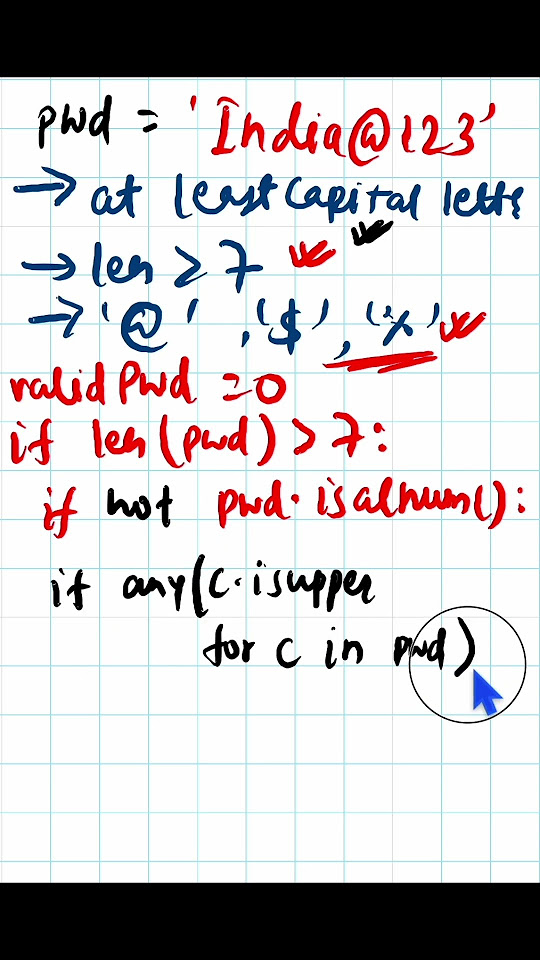 pwd = 'India@123'
→ at least Capital lette
→ len ≥ 7
→ '@' , '$', '%'
validPwd = 0
if len(pwd) > 7:
if not pwd.isalnum():
if any(c.isupper
for c in pwd)